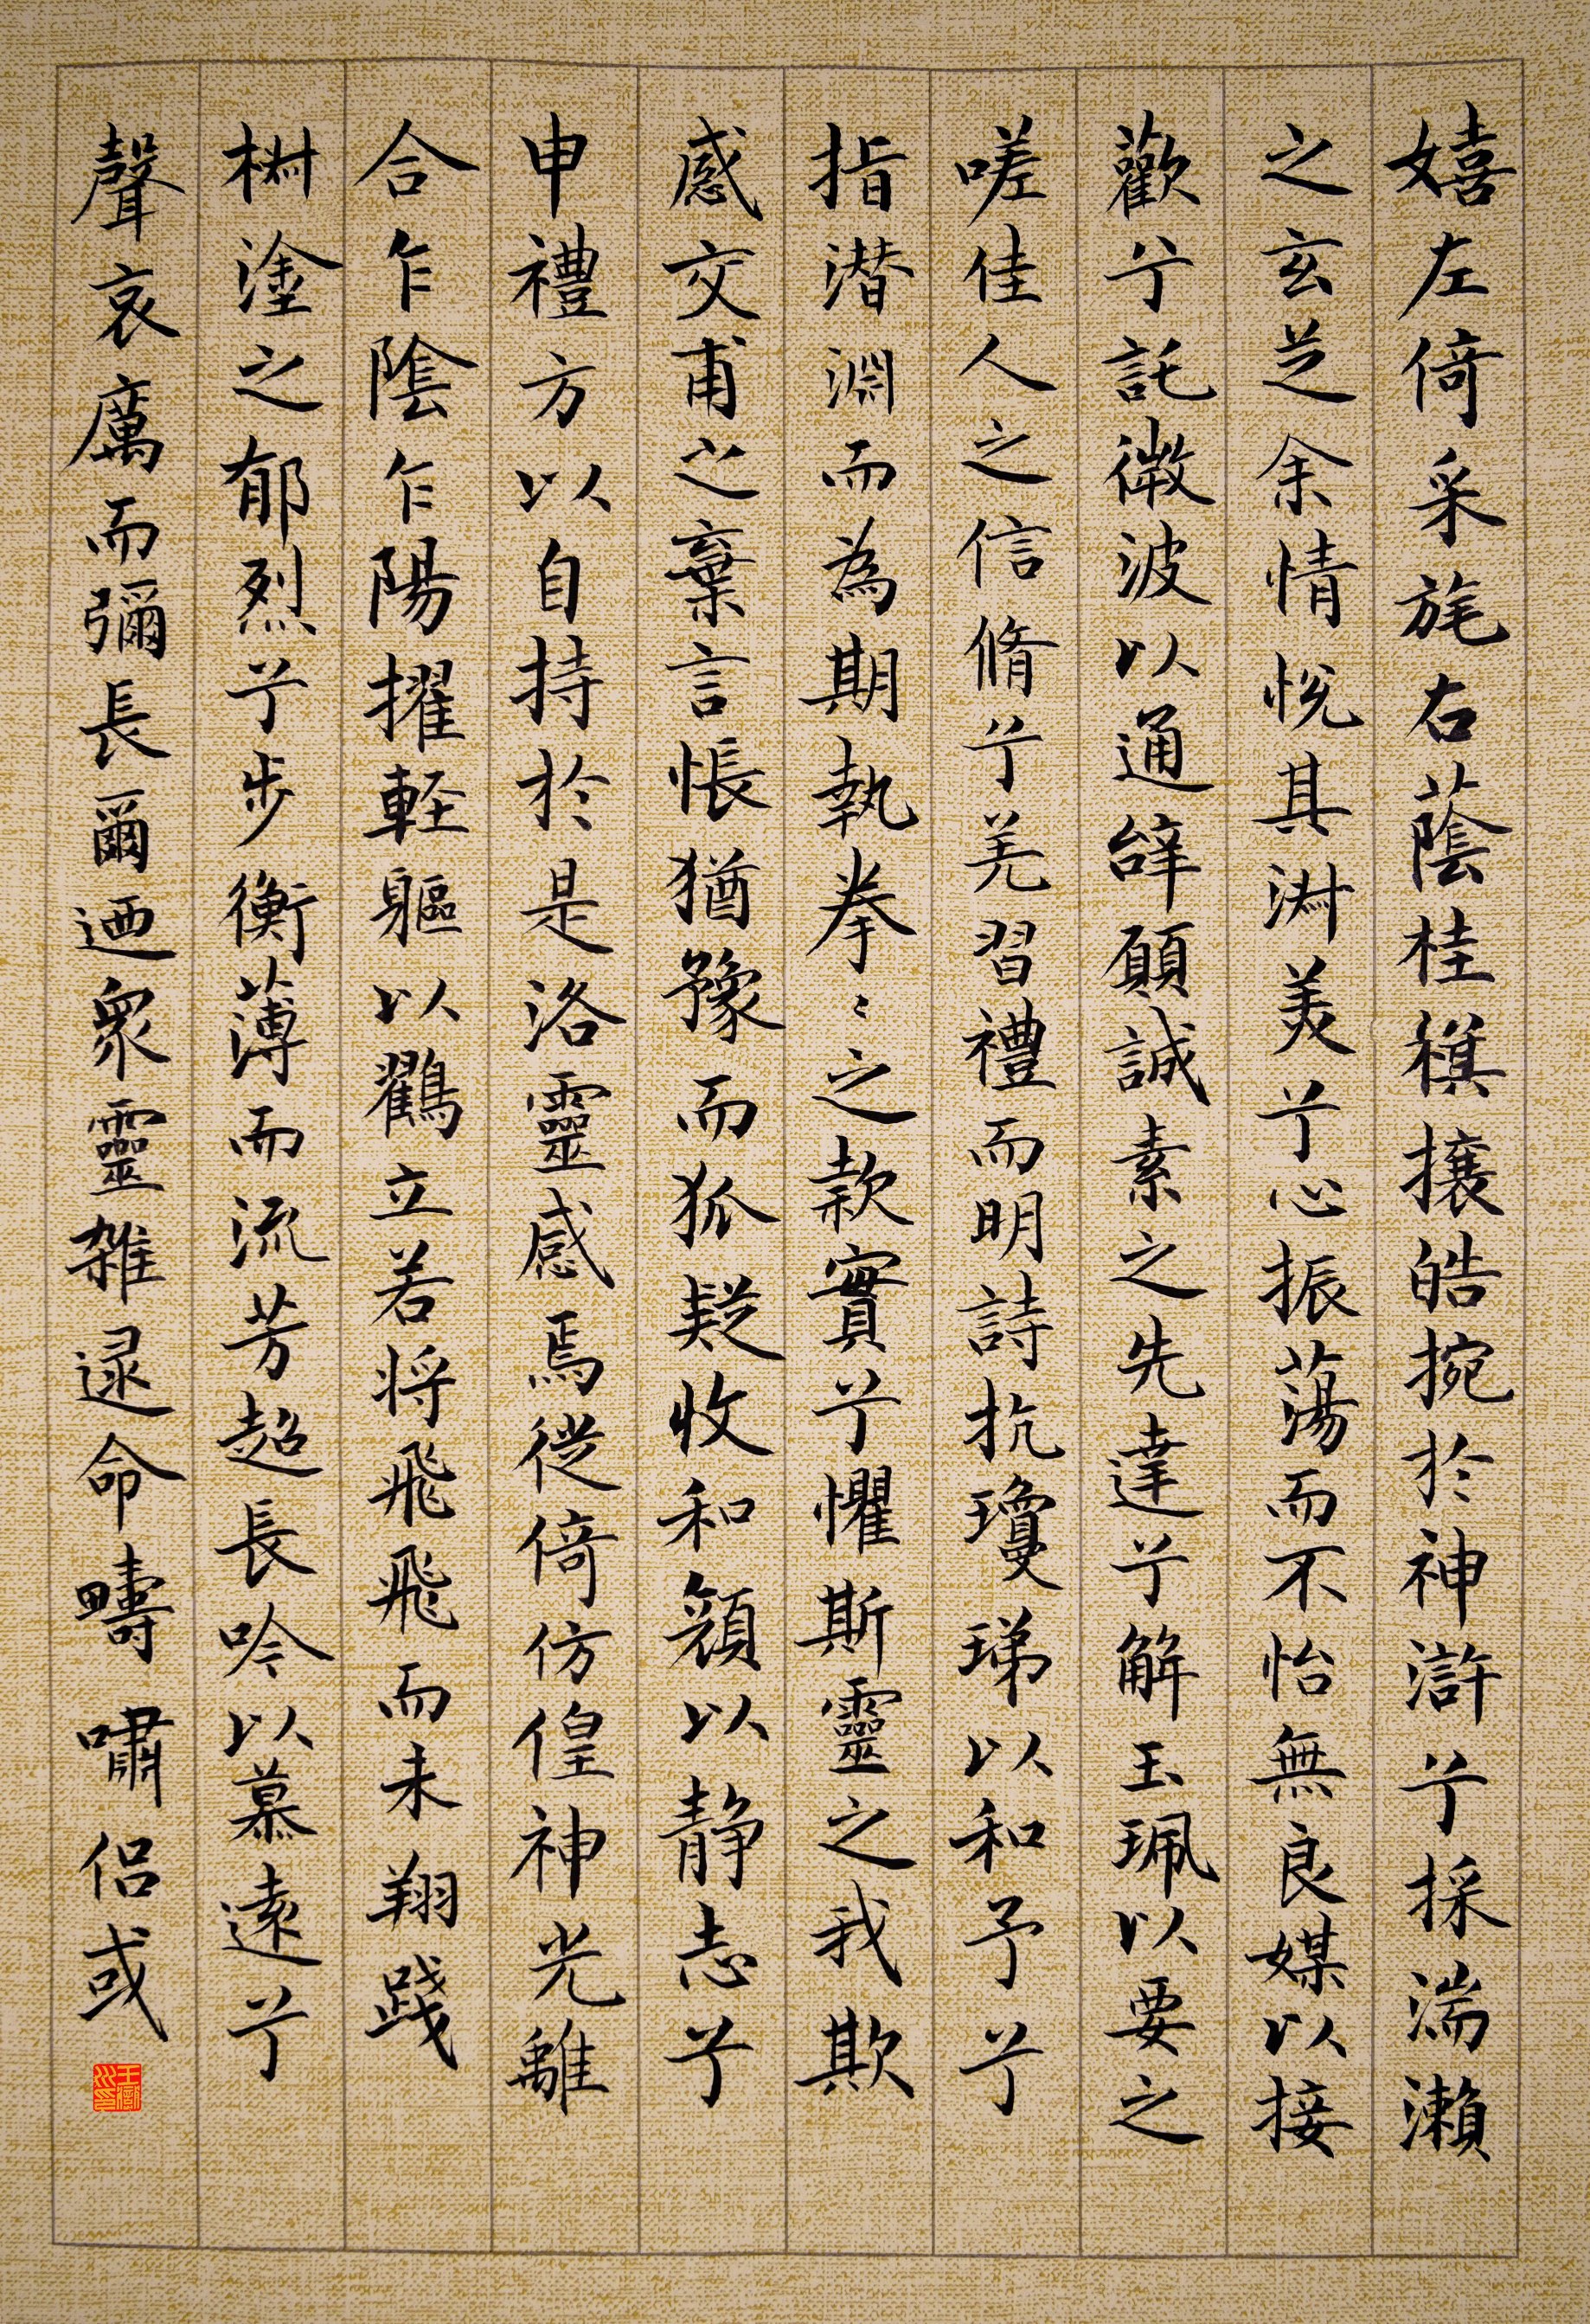 嬉左倚采旄右蔭桂旗攘皓捥於神滸兮採湍瀨
之玄芝余情悅其淋美兮心振蕩而不怡無良媒以接
歡兮託微波以通辞願誠素之先達兮解玉珮以要之
嗟佳人之信脩兮羌習禮而明詩抗瓊珶以和予兮
指潛淵而為期執拳〻之款實兮懼斯靈之我欺
感交甫之棄言悵猶豫而狐疑收和顏以静志兮
申禮方以自持於是洛靈感焉從倚仿偟神光離
合乍陰乍陽擢軽軀以鸖立若将飛飛而未翔踐
椒塗之郁烈兮步衡薄而流芳超長吟以慕遠兮
聲哀厲而彌長爾迺眾靈雑逯命疇嘯侶或